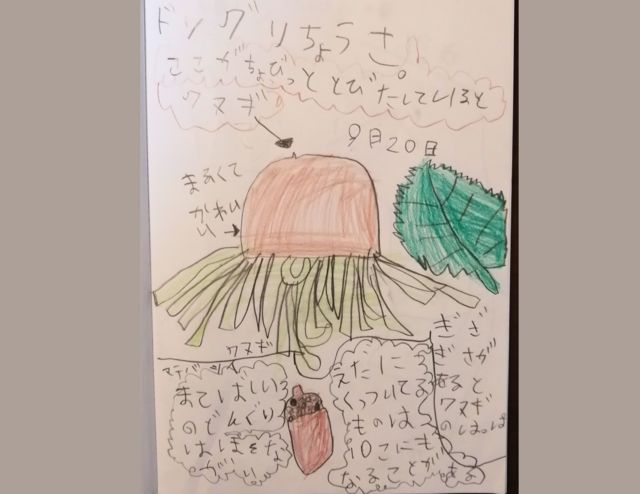 ドングりちょうさ
ここがちょびっととびだしていると
クヌギ
9月20日
まるくて
かわい
い
クヌギ
ぎざ
ぎざが
あると
クヌギ
のはっぱ
マテバシイ
まてばしい
のどんぐり
はほそな
がい
えだに
くっついてる
ものは
10こにも
なることがある